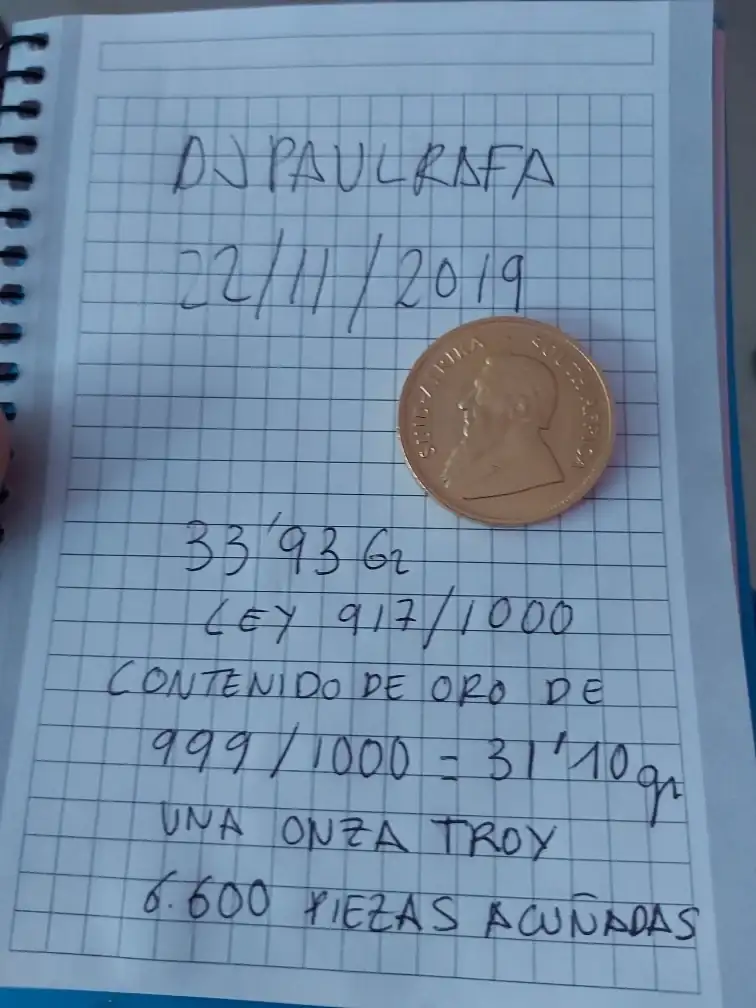 DJPAULRAFA
22/11/2019
SUID-AFRIKA · SOUTH AFRICA
33'93 Gr
LEY 917/1000
CONTENIDO DE ORO DE
999/1000 = 31'10 gr
UNA ONZA TROY
6.600 PIEZAS ACUÑADAS